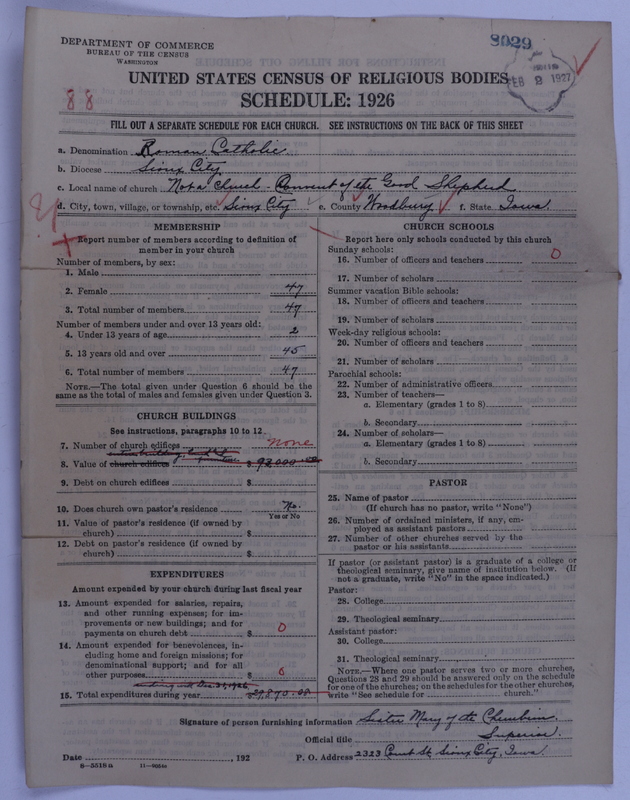 DEPARTMENT OF COMMERCE
BUREAU OF THE CENSUS
WASHINGTON
8029
FEB 2 1927
UNITED STATES CENSUS OF RELIGIOUS BODIES
SCHEDULE: 1926
88
FILL OUT A SEPARATE SCHEDULE FOR EACH CHURCH. SEE INSTRUCTIONS ON THE BACK OF THIS SHEET
a. Denomination Roman Catholic
b. Diocese Sioux City
c. Local name of church Not a Church. Convent of the Good Shepherd
d. City, town, village, or township, etc. Sioux City e. County Woodbury f. State Iowa.
MEMBERSHIP
Report number of members according to definition of
member in your church
Number of members, by sex:
1. Male
2. Female 47
3. Total number of members 47
Number of members under and over 13 years old:
4. Under 13 years of age 2
5. 13 years old and over 45
6. Total number of members 47
NOTE.—The total given under Question 6 should be the
same as the total of males and females given under Question 3.
CHURCH BUILDINGS
See instructions, paragraphs 10 to 12
7. Number of church edifices none
8. Value of church edifices $ 92000
9. Debt on church edifices $
10. Does church own pastor's residence No.
Yes or No
11. Value of pastor's residence (if owned by
church) $
12. Debt on pastor's residence (if owned by
church) $
EXPENDITURES
Amount expended by your church during last fiscal year
13. Amount expended for salaries, repairs,
and other running expenses; for im-
provements or new buildings; and for
payments on church debt $ 0
14. Amount expended for benevolences, in-
cluding home and foreign missions; for
denominational support; and for all
other purposes $ 0
ending Dec. 31, 1926
15. Total expenditures during year $29,870.08
CHURCH SCHOOLS
Report here only schools conducted by this church
Sunday schools:
16. Number of officers and teachers 0
17. Number of scholars
Summer vacation Bible schools:
18. Number of officers and teachers
19. Number of scholars
Week-day religious schools:
20. Number of officers and teachers
21. Number of scholars
Parochial schools:
22. Number of administrative officers
23. Number of teachers—
a. Elementary (grades 1 to 8)
b. Secondary
24. Number of scholars—
a. Elementary (grades 1 to 8)
b. Secondary
PASTOR
25. Name of pastor
(If church has no pastor, write "None")
26. Number of ordained ministers, if any, em-
ployed as assistant pastors
27. Number of other churches served by the
pastor or his assistants
If pastor (or assistant pastor) is a graduate of a college or
theological seminary, give name of institution below. (If
not a graduate, write "No" in the space indicated.)
Pastor:
28. College
29. Theological seminary
Assistant pastor:
30. College
31. Theological seminary
NOTE.—Where one pastor serves two or more churches,
Questions 28 and 29 should be answered only on the schedule
for one of the churches; on the schedules for the other churches,
write "See schedule for church."
Signature of person furnishing information Sister Mary of the Cherubim
Official title Superior.
Date , 192 P. O. Address 2323 Court St. Sioux City, Iowa.
8—5518 a